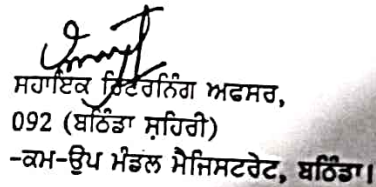 ਸਹਾਇਕ ਰਿਟਰਨਿੰਗ ਅਫਸਰ,
092 (ਬਠਿੰਡਾ ਸ਼ਹਿਰੀ)
-ਕਮ-ਉਪ ਮੰਡਲ ਮੈਜਿਸਟਰੇਟ, ਬਠਿੰਡਾ।